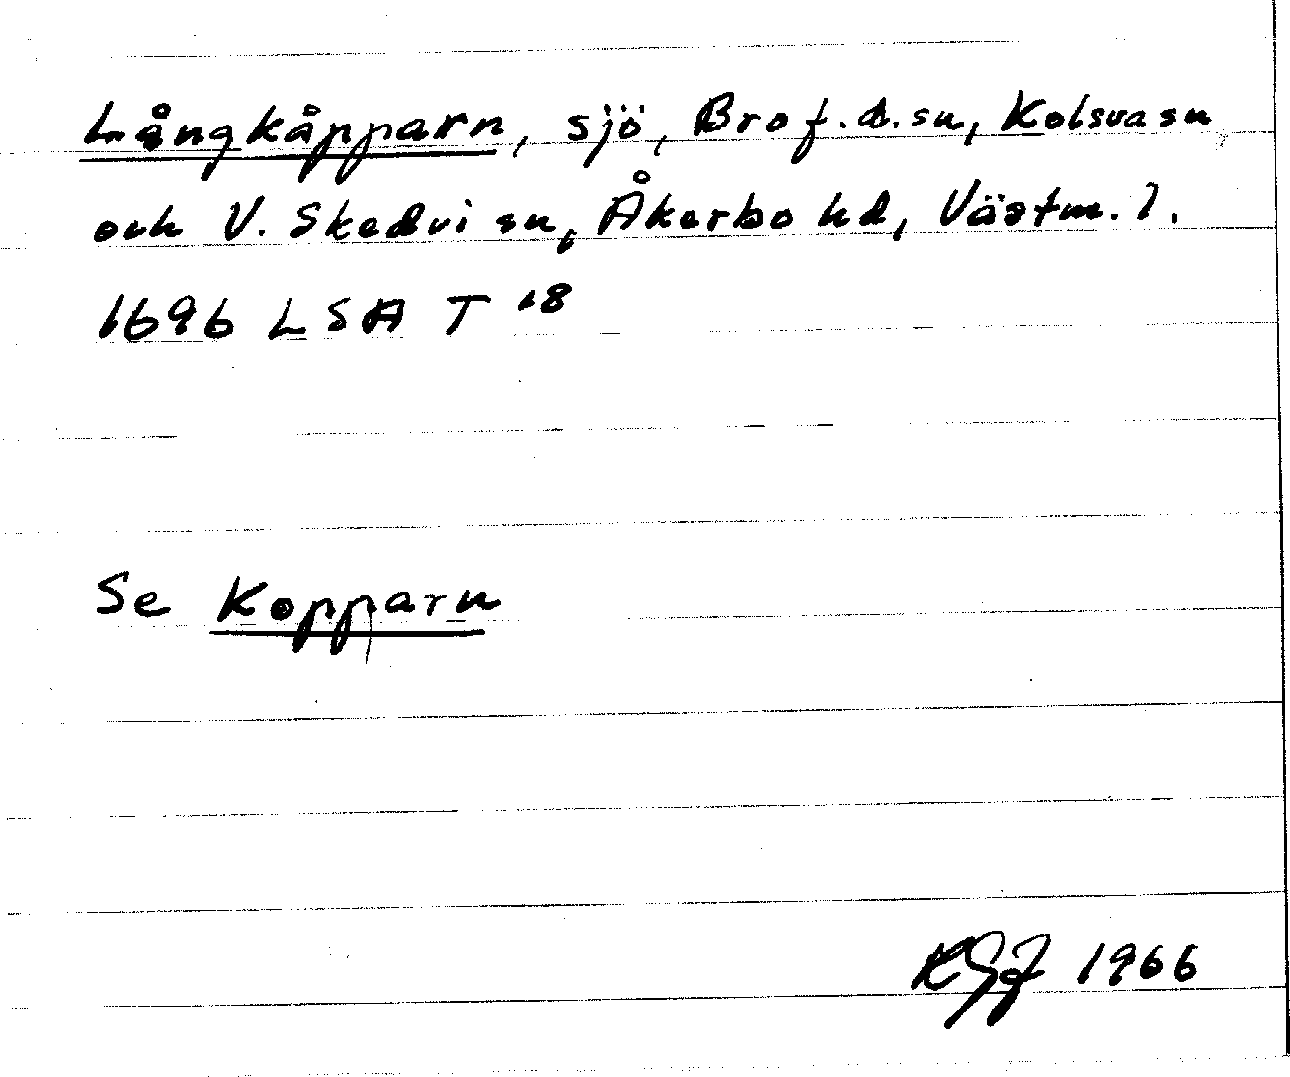 Långkåpparn, sjö, Bro f.d.sn, Kolsva sn
och V. Skedvi sn, Åkerbo hd, Västm. l.
1696 LSA T 18
Se Kopparn
1966